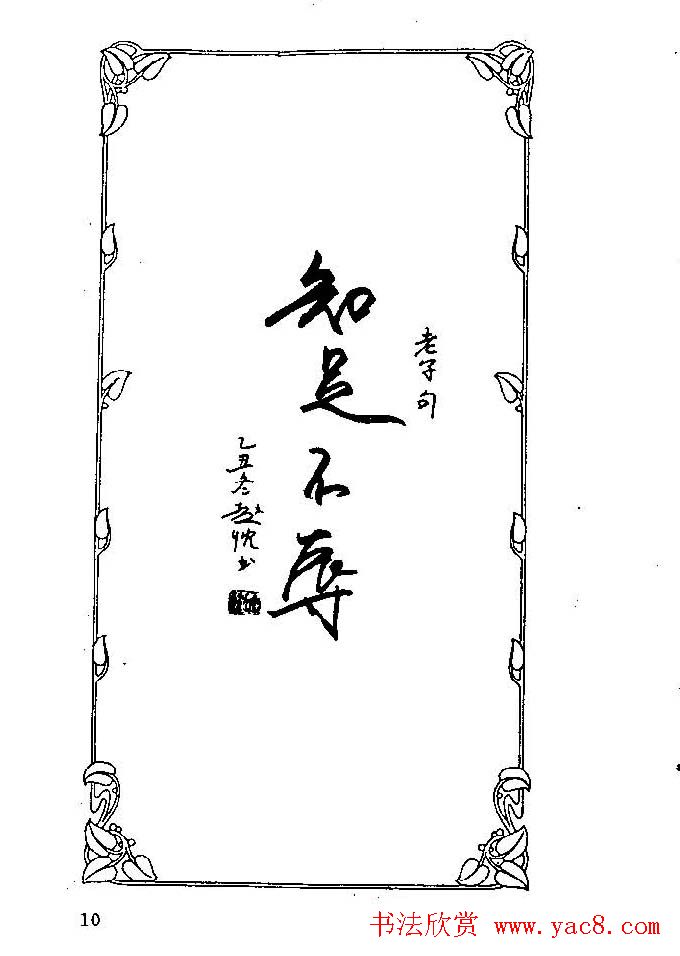 老子句
知足不辱
乙丑冬 书
10
书法欣赏 www.yac8.com